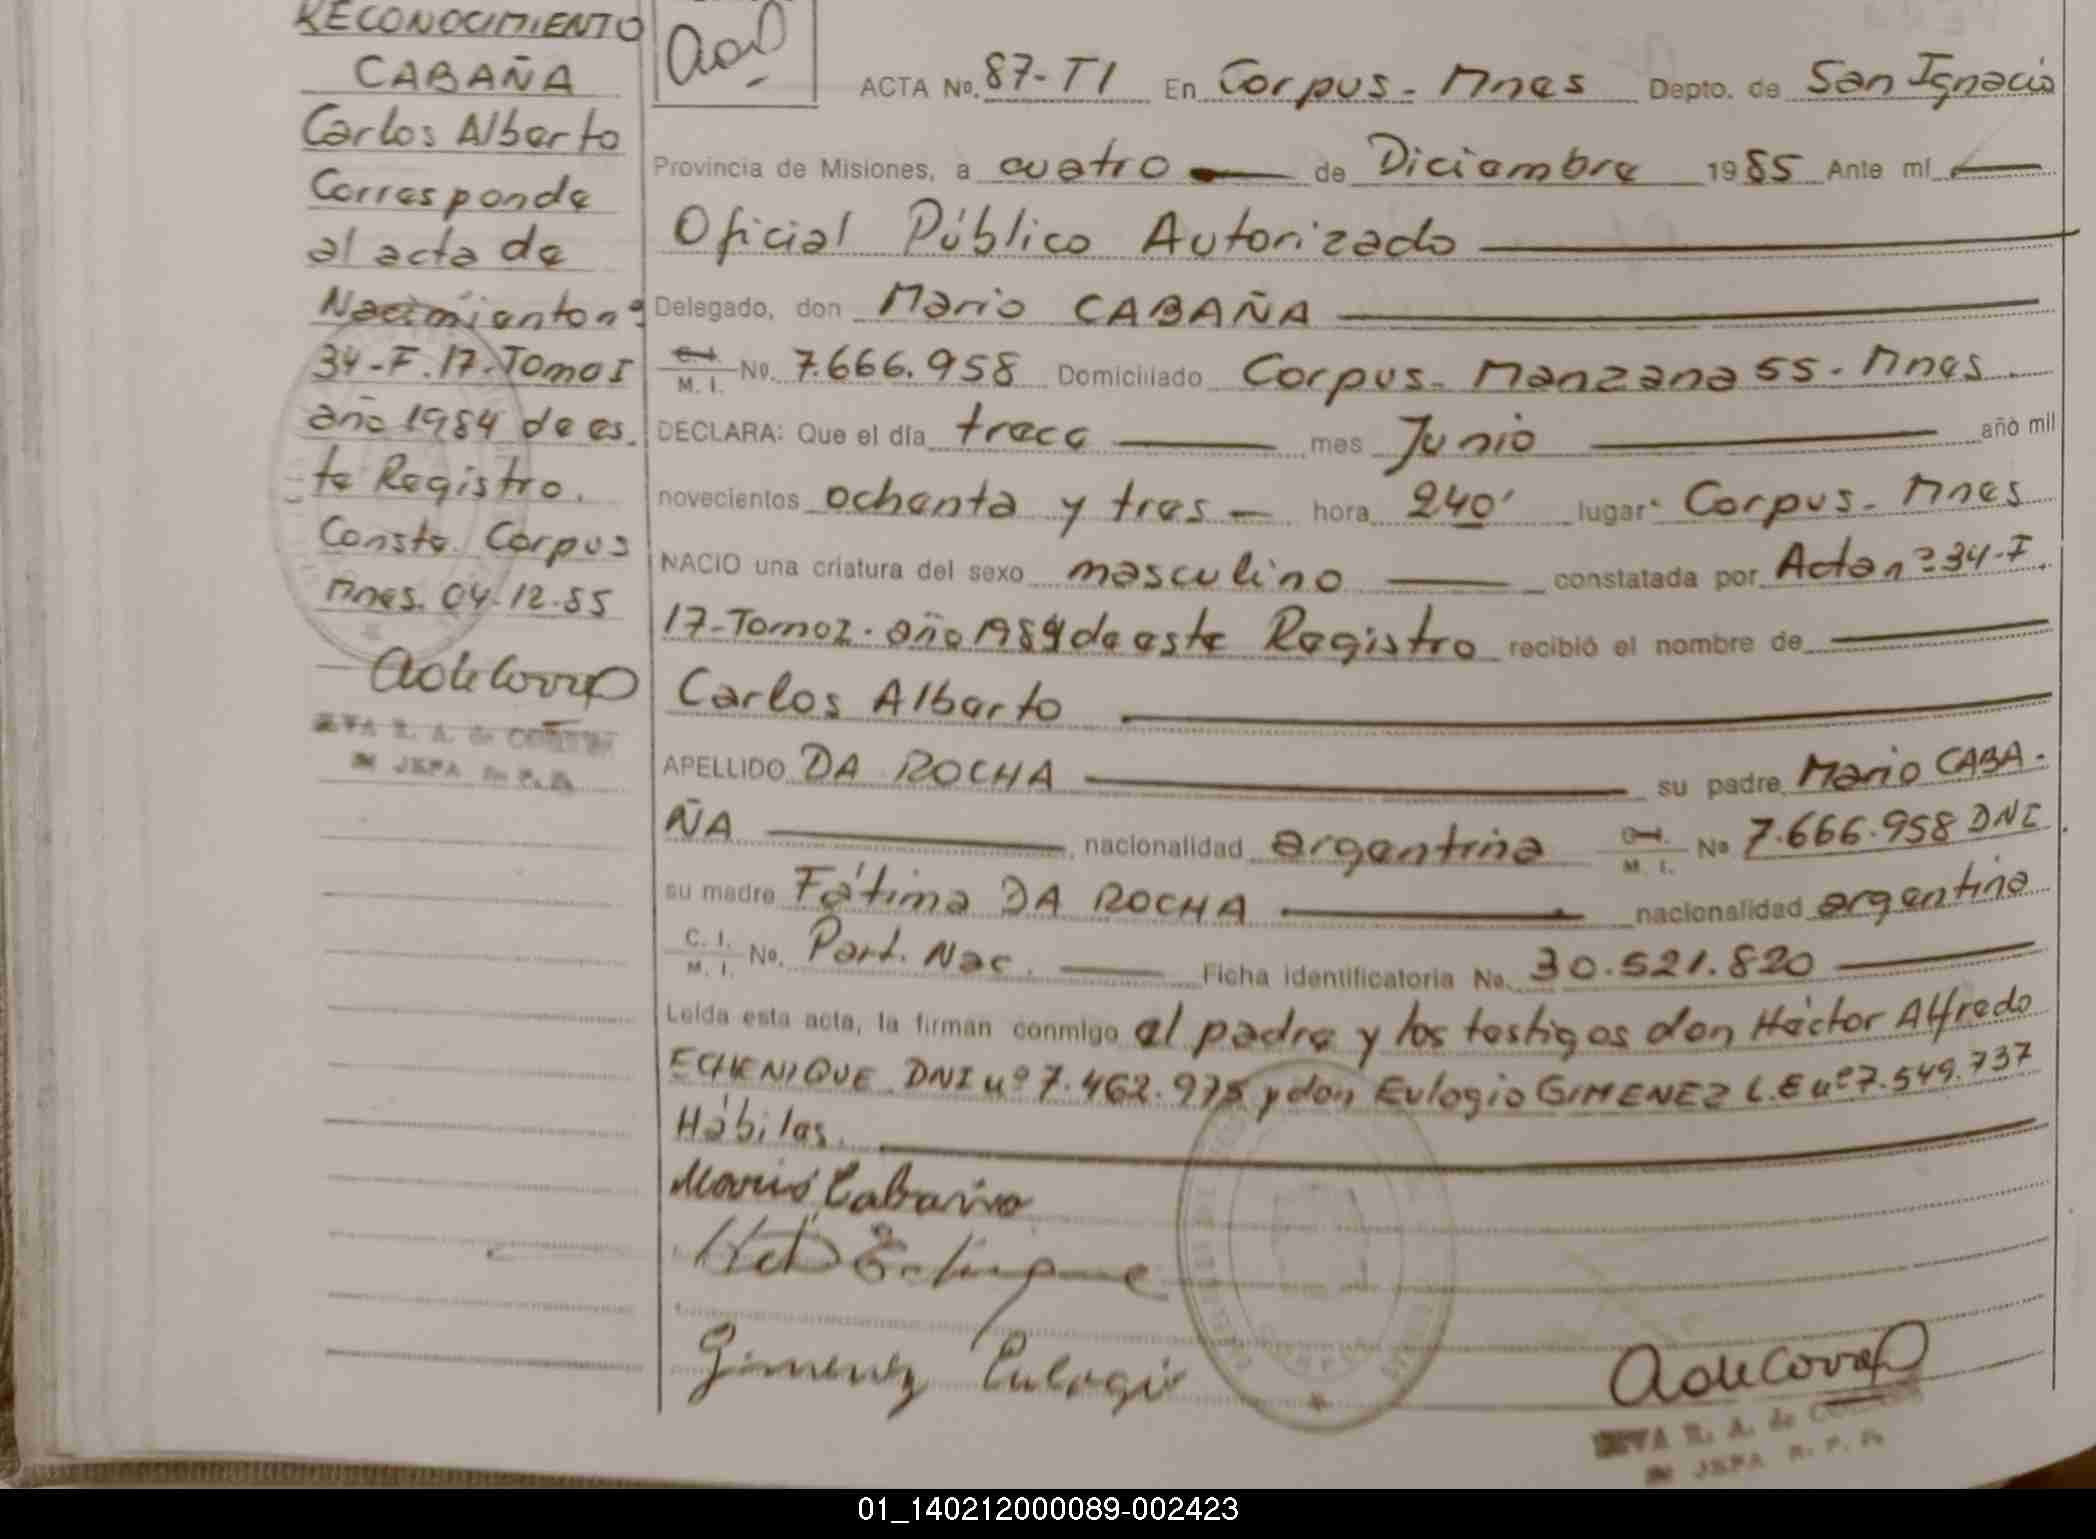 RECONOCIMIENTO
CABAÑA
Carlos Alberto
Corresponde
al acta de
Nacimiento nº
34-F.17-Tomo I
año 1984 de es-
te Registro.
Conste. Corpus
Mnes. 04-12-85
ACTA No. 87-TI En Corpus- Mnes Depto. de San Ignacio
Provincia de Misiones, a cuatro de Diciembre 1985 Ante mí
Oficial Público Autorizado
Delegado, don Mario CABAÑA
C.I. M. I. No. 7.666.958 Domiciliado Corpus- Manzana 55- Mnes
DECLARA: Que el día trece mes Junio año mil
novecientos ochenta y tres - hora 240' lugar Corpus- Mnes
NACIO una criatura del sexo masculino constatada por Acta nº 34-F.
17-Tomo I. año 1984 de este Registro recibió el nombre de
Carlos Alberto
APELLIDO DA ROCHA su padre Mario CABA-
ÑA, nacionalidad argentina C.I. M. I. No 7.666.958 DNI
su madre Fátima DA ROCHA nacionalidad argentina
C. I. M. I. No. Part. Nac. Ficha identificatoria No. 30.521.820
Leída esta acta, la firman conmigo el padre y los testigos don Héctor Alfredo
ECHENIQUE DNI nº 7.462.975 y don Eulogio GIMENEZ L.E nº 7.549.737
Hábiles.
Mario Cabaña
Gimenez Eulogio
01_140212000089-002423